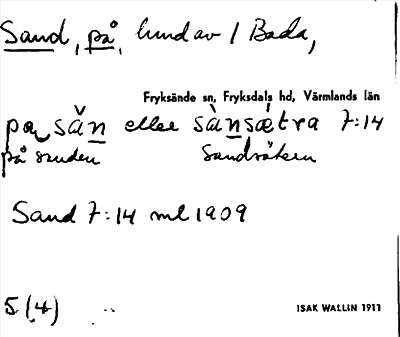 Sand, på, lund av / Bada,
Fryksände sn, Fryksdals hd, Värmlands län
pa sǎn eller sànsætra 7:14
på sanden Sandsätern
Sand 7:14 ml 1909
5 (4)
ISAK WALLIN 1911